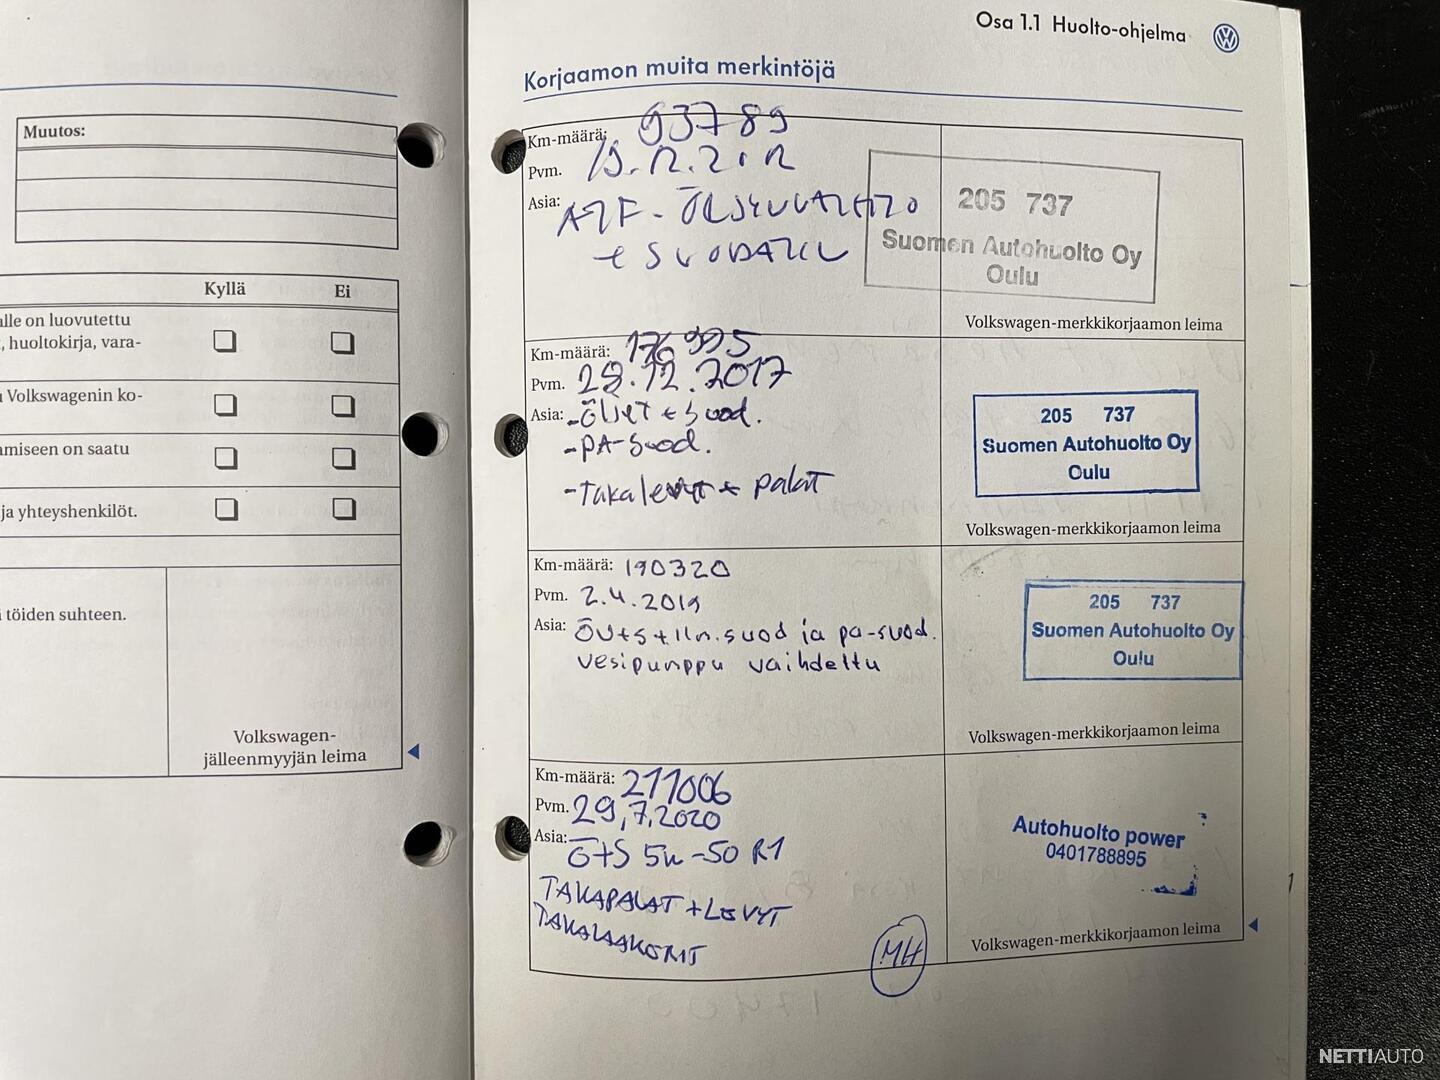 Muutos:
Kyllä
Ei
alle on luovutettu
, huoltokirja, vara-
Volkswagenin ko-
amiseen on saatu
ja yhteyshenkilöt.
töiden suhteen.
Volkswagen-
jälleenmyyjän leima
Osa 1.1 Huolto-ohjelma
Korjaamon muita merkintöjä
Km-määrä: 93789
Pvm. 19.12.2012
Asia: ÖLJYNVAIHTO
+ SUODATIN
205 737
Suomen Autohuolto Oy
Oulu
Volkswagen-merkkikorjaamon leima
Km-määrä: 176995
Pvm. 28.12.2017
Asia: -Öljyt + suod.
-PA-suod.
-Takalevyt + palat
205 737
Suomen Autohuolto Oy
Oulu
Volkswagen-merkkikorjaamon leima
Km-määrä: 190320
Pvm. 2.4.2019
Asia: Öv+s+ilm.suod ja pa-suod.
vesipumppu vaihdettu
205 737
Suomen Autohuolto Oy
Oulu
Volkswagen-merkkikorjaamon leima
Km-määrä: 211006
Pvm. 29.7.2020
Asia: Ö+S 5w-50 R1
TAKAPALAT+LEVYT
TAKALAAKERIT
MH
Autohuolto power
0401788895
Volkswagen-merkkikorjaamon leima
NETTIAUTO